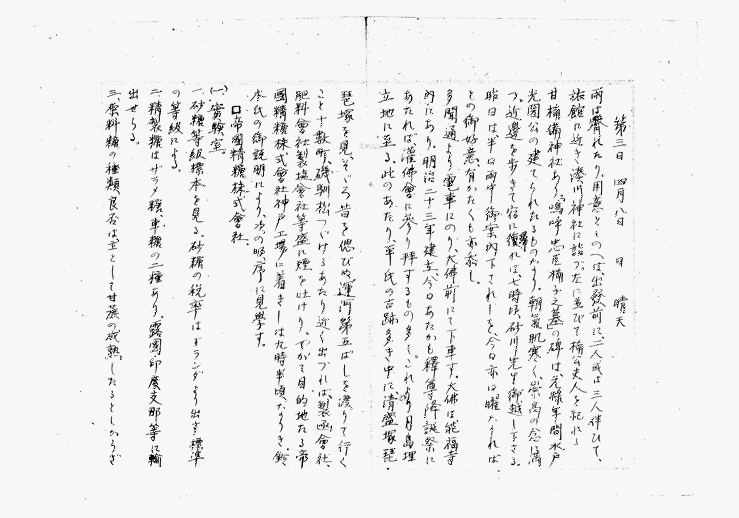 第三日 四月八日 日 晴天
雨は霽れたり、用意とゝのへば、出発前に、二人或は三人伴ひて、
旅館に近き湊川神社に詣づ。左に並びて楠公夫人を祀れる
甘楠備神社あり。嗚呼忠臣楠子之墓の碑は元禄年間水戸
光圀公の建てられたるものなり。朝気肌寒く、崇高の念に満
つ、近辺を歩きて宿に復れば、七時頃、砂川先生御越し下さる。
昨日は半日雨中御案内下されしを、今日亦日曜なれば、
との御好意、有がたくも亦忝し。
多聞通より電車にのり、大佛前にて下車す。大佛は能福寺
的にあり、明治二十三年建立、今日あたかも釋尊降誕祭に
あたれば、灌佛會に参り拝するもの多く。これより月島埋
立地に至る。此のあたり、平氏の古跡多き中に清盛塚、琵
琶塚を見、そゞろ昔を偲びぬ。運河第五ばしを渡りて行く
こと十数町、磯馴松つゞけるあたり近く出づれば、製函會社、
肥料會社、製塩會社等盛に煙を吐けり。やがて目的地たる帝
國精糖株式會社神戸工場に着きしは九時半頃なりき。鈴
木氏の御説明により、次の順序に見学す。
□帝國精糖株式會社、
(一)實験室。
一、砂糖等級標本を見る。砂糖の税率はオランダより出す標準
の等級による。
二、精製糖はザラメ糖、車糖の二種あり、露國印度支那等に輸
出せらる。
三、原料糖の種類良否は主として甘蔗の成熟したるとしからざ